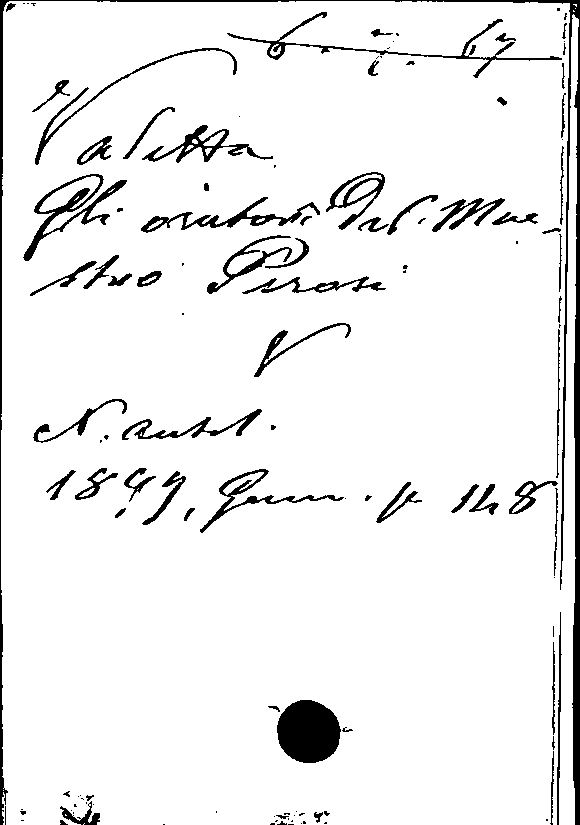 6. 7. 67
Valetta
Gli oratori del Mae-
stro Perosi
V
N. antol.
1899, Genn. p 148